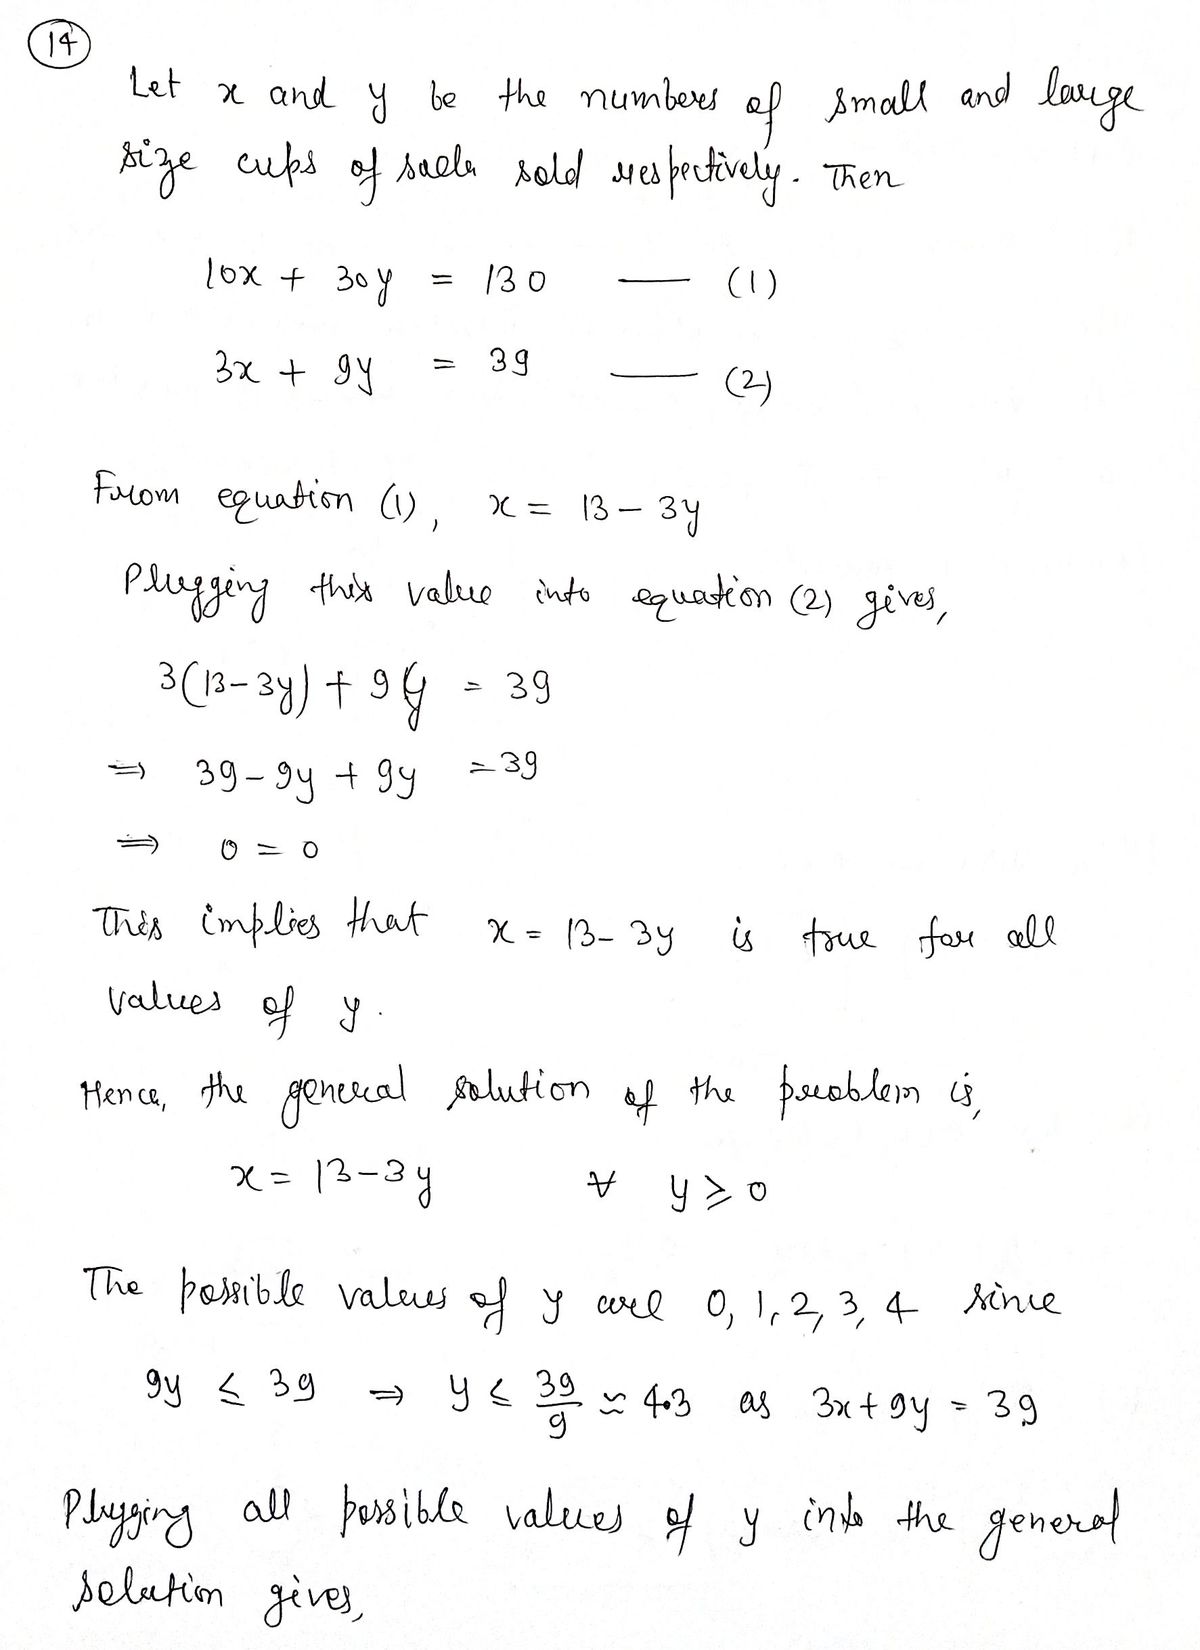 14
Let x and y be the numbers of small and large
size cups of soda sold respectively. Then
10x + 30y = 130 — (1)
3x + 9y = 39 — (2)
From equation (1), x = 13 - 3y
Plugging this value into equation (2) gives,
3(13-3y) + 9y = 39
⇒ 39 - 9y + 9y = 39
⇒ 0 = 0
This implies that x = 13 - 3y is true for all
values of y.
Hence, the general solution of the problem is,
x = 13 - 3y ∀ y ≥ 0
The possible values of y are 0, 1, 2, 3, 4 since
9y ≤ 39 ⇒ y ≤ 39/9 ≈ 4.3 as 3x + 9y = 39
Plugging all possible values of y into the general
solution gives,